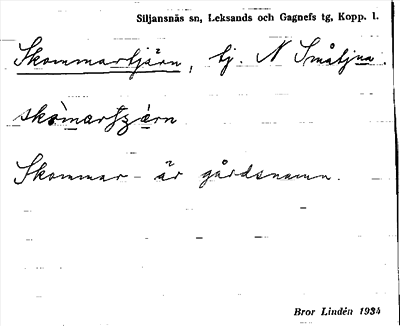 Siljansnäs sn, Leksands och Gagnefs tg, Kopp. l.
Skommartjärn, tj. N Småtjna.
skòmartjæ̀rn
Skommar- är gårdsnamn.
Bror Lindén 1934